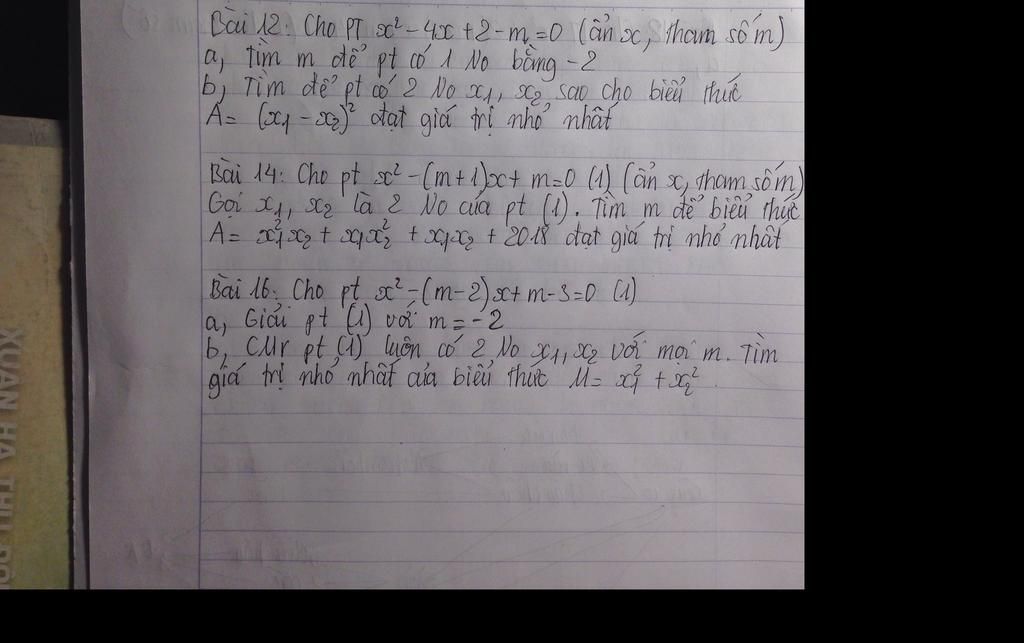 Bài 12: Cho PT x² - 4x + 2 - m = 0 (ẩn x, tham số m)
a, Tìm m để pt có 1 No bằng -2
b, Tìm để pt có 2 No x₁, x₂ sao cho biểu thức
A = (x₁ - x₂)² đạt giá trị nhỏ nhất
Bài 14: Cho pt x² - (m+1)x + m = 0 (1) (ẩn x, tham số m)
Gọi x₁, x₂ là 2 No của pt (1). Tìm m để biểu thức
A = x₁²x₂ + x₁x₂² + x₁x₂ + 2018 đạt giá trị nhỏ nhất
Bài 16: Cho pt x² - (m-2)x + m - 3 = 0 (1)
a, Giải pt (1) với m = -2
b, CMr pt (1) luôn có 2 No x₁, x₂ với mọi m. Tìm
giá trị nhỏ nhất của biểu thức M = x₁² + x₂²
XUAN HA THU DO